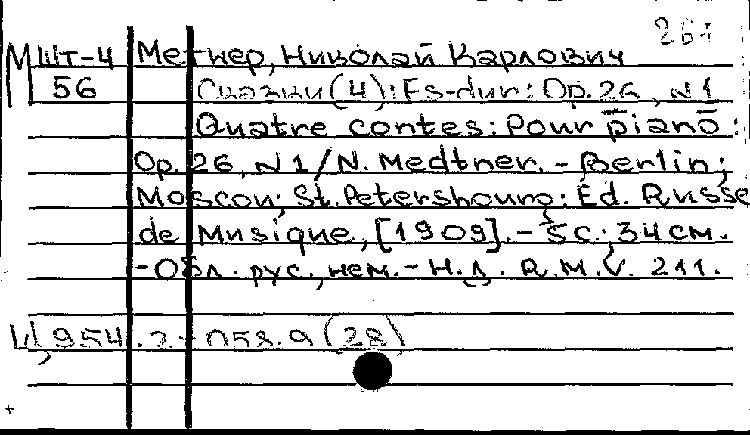 261
М Шт-4 Метнер, Николай Карлович
56 Сказки (4): Es-dur: Op. 26, N1
Quatre contes: Pour piano:
Op. 26, N 1 / N. Medtner. - Berlin;
Moscou; St. Petersbourg: Ed. Russe
de Musique, [1909]. - 5 с.; 34 см.
- Обл. рус., нем. - Н.д. R.M.V. 211.
Ц,954.2-058.9(28)